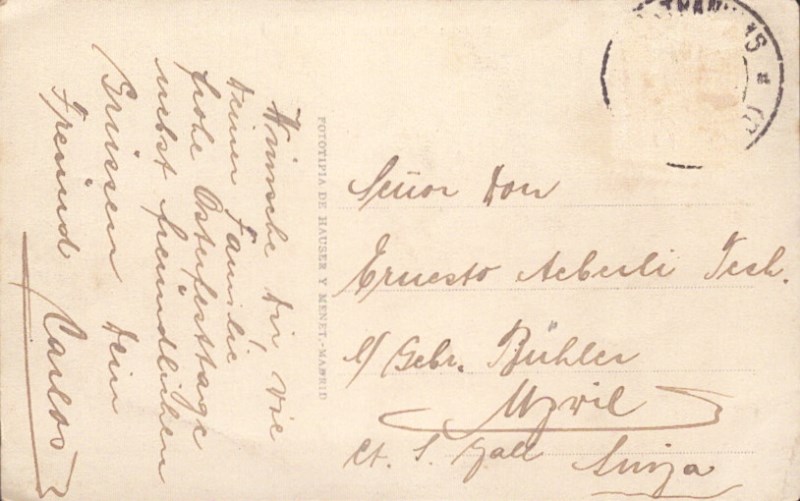 Wünsche Dir wie
Deiner Familie
frohe Osterfesttage
nebst freundlichen
Grüssen Dein
Freund Carlos
FOTOTIPIA DE HAUSER Y MENET.-MADRID
Señor Don
Ernesto Aeberli Tech.
c/ Gebr. Bühler
Uzwil
Ct. S. Gall Suiza